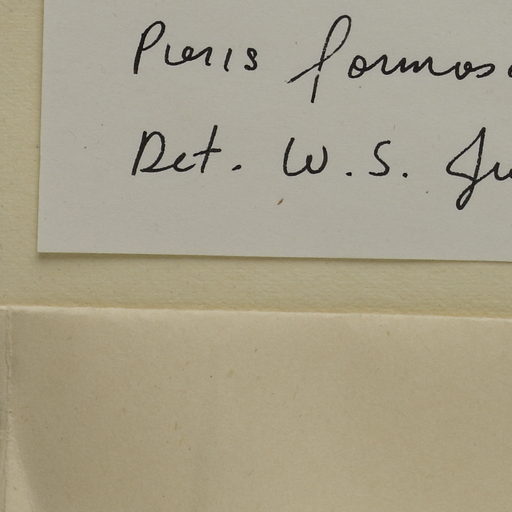 Pieris formosa
Det. W. S. Ju